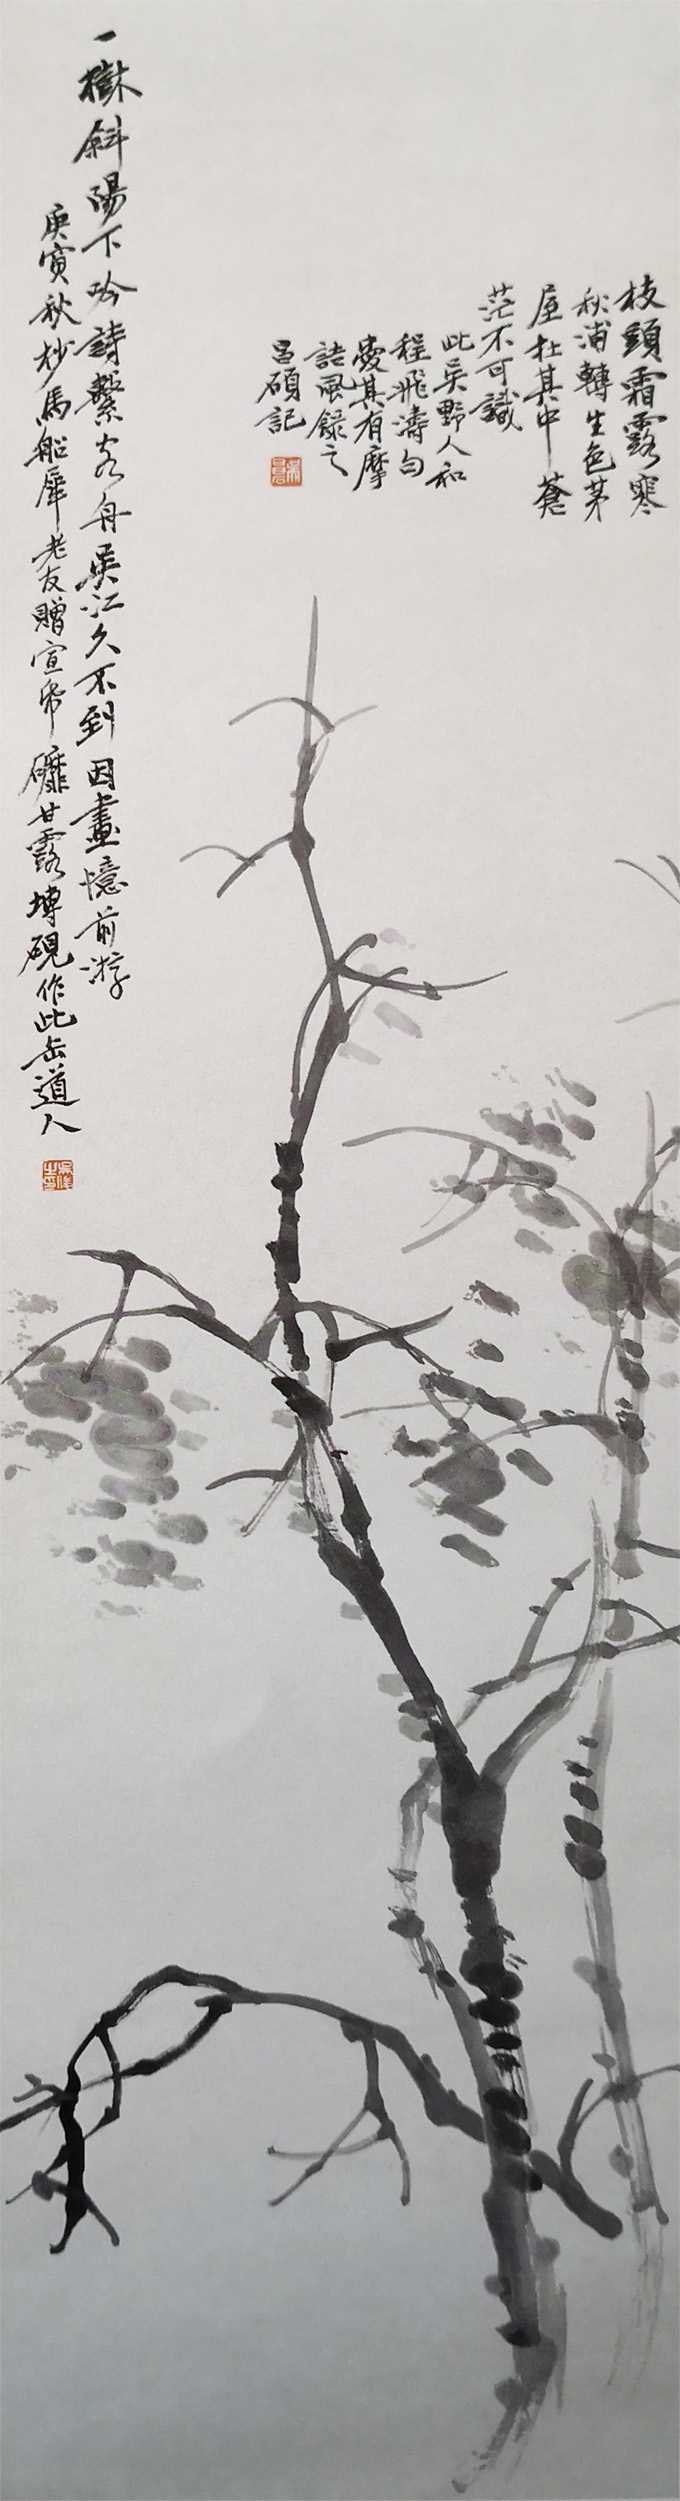 枝頭霜露寒
秋浦轉生色茅
屋在其中蒼
茫不可識
此吳野人和
程飛濤句
愛其有摩
詰風錄之
昌碩記
一樹斜陽下吟詩繫客舟吳江久不到因畫憶前游
庚寅秋杪馬船犀老友贈宣帋礲甘露塼硯作此缶道人